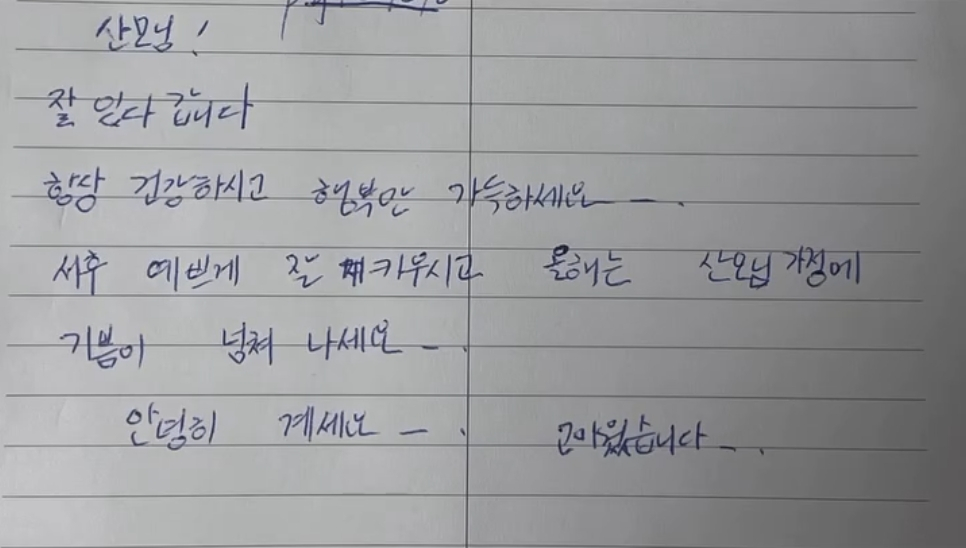 산모님!
잘 있다 갑니다
항상 건강하시고 행복만 가득하세요 - .
서후 예쁘게 잘 키우시고 올해는 산모님 가정에
기쁨이 넘쳐 나세요 - .
안녕히 계세요 - . 고마웠습니다 - .